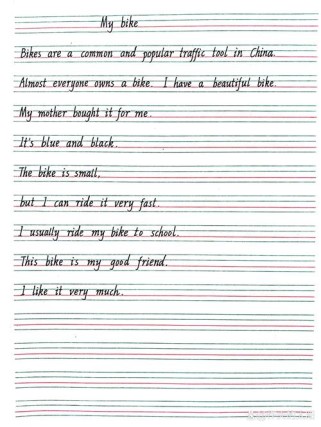 My bike
Bikes are a common and popular traffic tool in China.
Almost everyone owns a bike. I have a beautiful bike.
My mother bought it for me.
It's blue and black.
The bike is small,
but I can ride it very fast.
I usually ride my bike to school.
This bike is my good friend.
I like it very much.